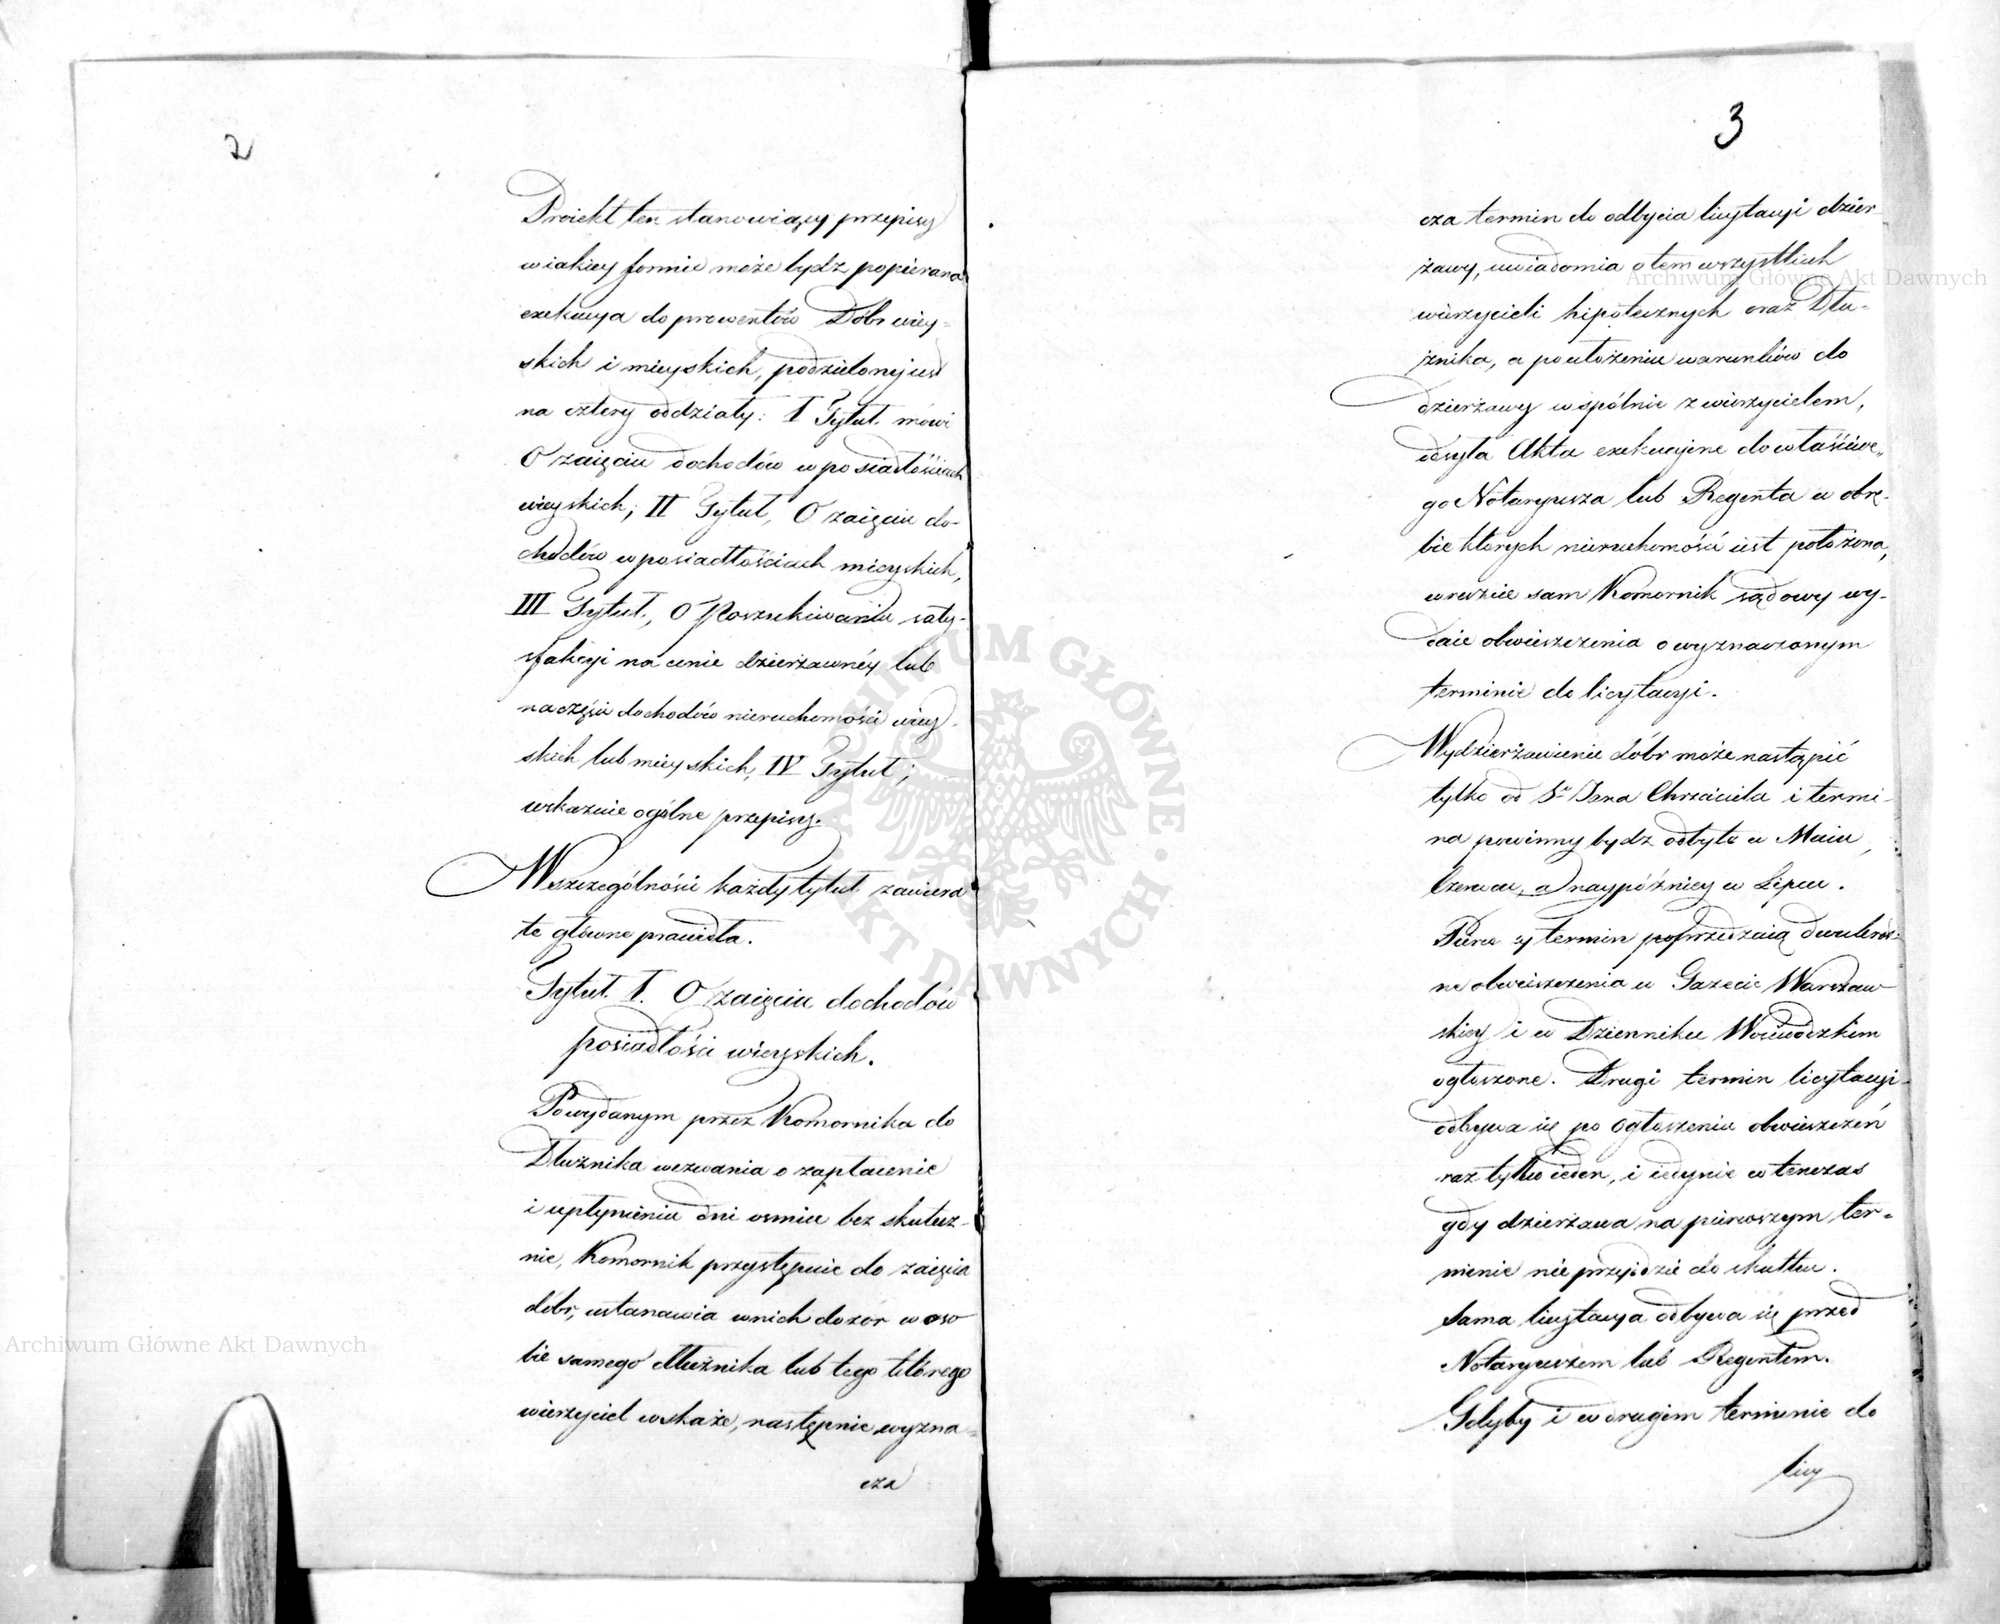 2
Proiekt ten stanowiący przepisy
w iakiey formie może bydz popierana
exekucya do prowentów Dóbr wiey-
skich i mieyskich, podzielony iest
na cztery oddziały: I Tytuł mówi
O zaięciu dochodów w posiadłościach
wieyskich; II Tytuł, O zaięciu do-
chodów w posiadłościach mieyskich,
III Tytuł, O Poszukiwaniu saty-
sfakcyi na cenie dzierżawnéy lub
na części dochodów nieruchomości wiey-
skich lub mieyskich, IV Tytuł;
wskazuie ogólne przepisy.
W szczególności każdy tytuł zawiera
te główne prawidła.
Tytuł I. O zaięciu dochodów
posiadłości wieyskich.
Po wydanym przez Komornika do
Dłużnika wezwania o zapłacenie
i upłynieniu dni ośmiu bez skutecz-
nie, Komornik przystępuie do zaięcia
dóbr, ustanawia w nich dozór w oso
bie samego dłużnika lub tego którego
wierzyciel wskaże, następnie wyzna-
cza
3
cza termin do odbycia licytacyi dzier-
żawy, uwiadomia o tem wszystkich
wierzycieli hipotecznych oraz Dłu-
żnika, a po ułożeniu warunków do
dzierżawy wspólnie z wierzycielem,
odsyła Akta exekucyjne do właściwe-
go Notaryusza lub Regenta w obrę-
bie których nieruchomość iest położona,
wreszcie sam Komornik sądowy wy-
daie obwieszczenia o wyznaczonym
terminie do licytacyi.
Wydzierżawienie dóbr może nastąpić
tylko od Sgo Jana Chrzciciela i termi-
na powinny bydz odbyte w Maiu,
Czerwcu, a naypóźniey w Lipcu.
Pierwszy termin poprzedzaią dwukrot-
ne obwieszczenia w Gazecie Warszaw
skiey i w Dzienniku Woiewódzkim
ogłoszone. Drugi termin licytacyi
odbywa się po ogłoszeniu obwieszczeń
raz tylko ieden, i iedynie wtenczas
gdy dzierżawa na pierwszym ter-
minie nie przyidzie do skutku.
Sama licytacya odbywa się przed
Notaryuszem lub Regentem.
Gdyby i w drugim terminie do
licy
Archiwum Główne Akt Dawnych
Archiwum Główne Akt Dawnych
ARCHIWUM GŁÓWNE AKT DAWNYCH